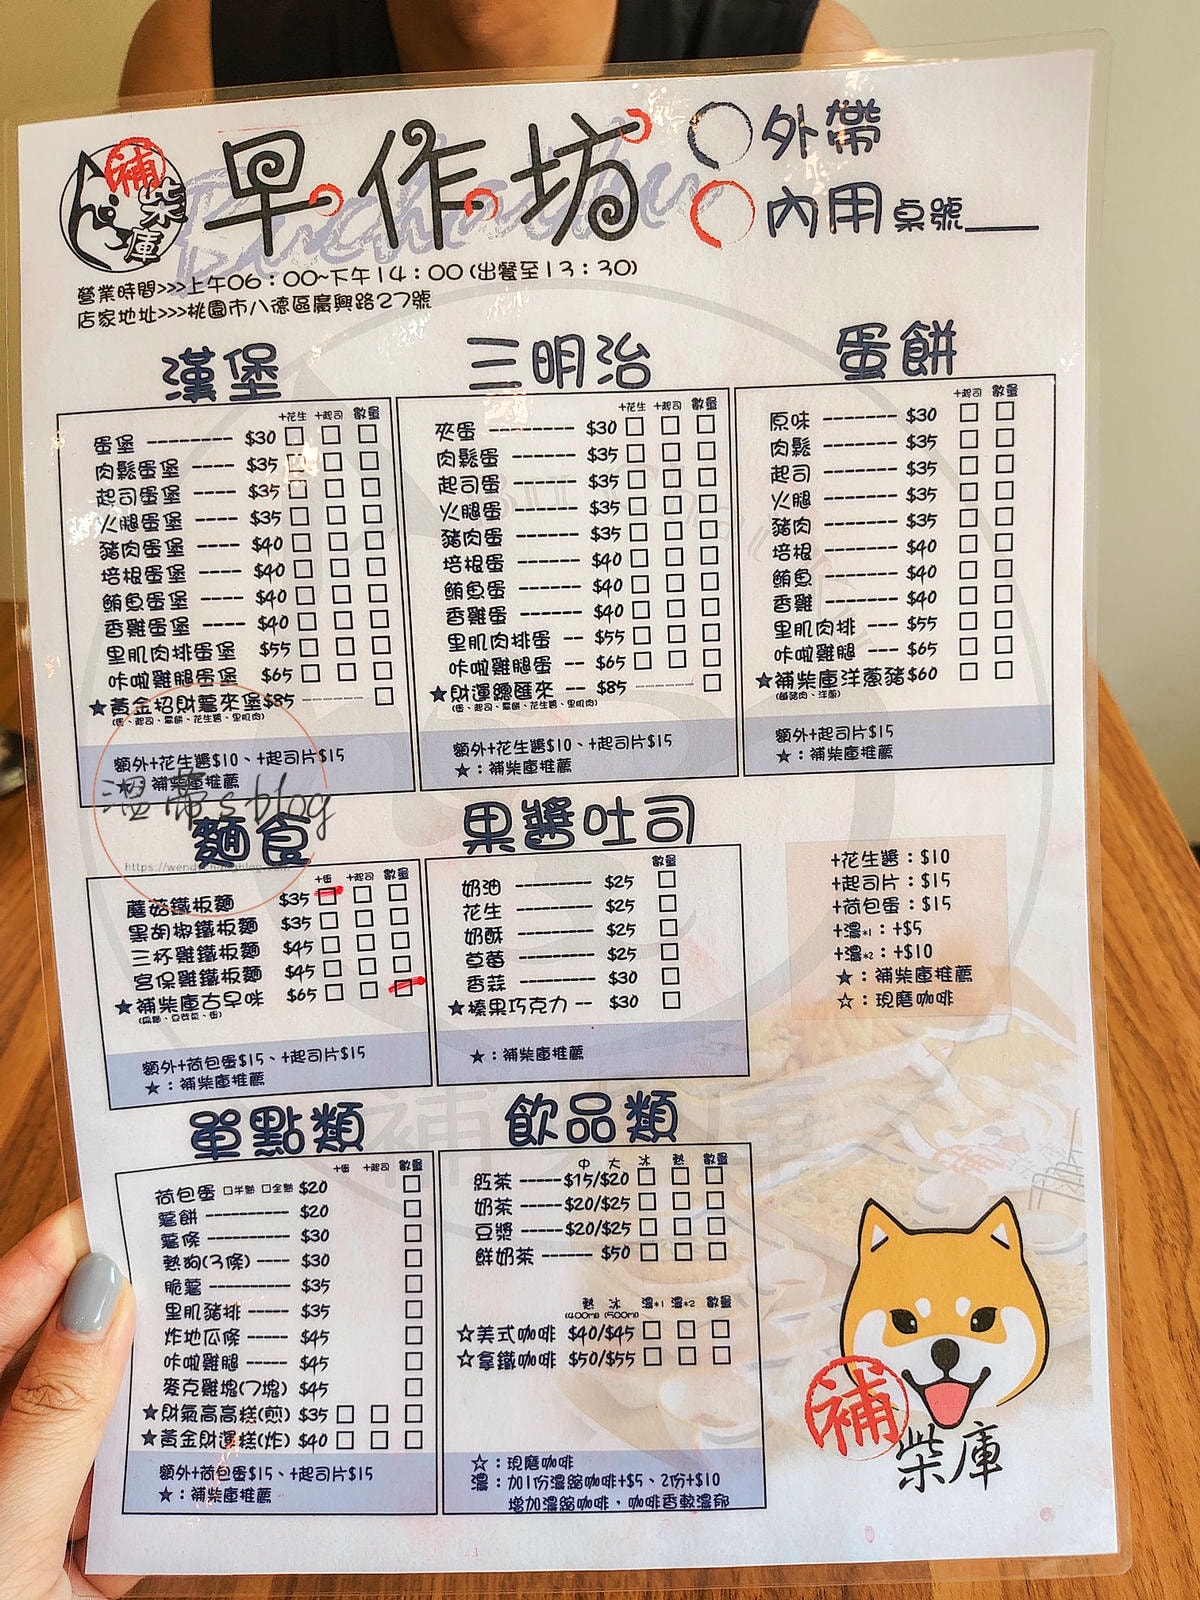 補
柴
庫
早作坊
外帶
內用 桌號
營業時間>>>上午06：00~下午14：00(出餐至13：30)
店家地址>>>桃園市八德區廣興路27號
漢堡
+花生 +起司 數量
蛋堡 -------- $30
肉鬆蛋堡 ---- $35
起司蛋堡 ---- $35
火腿蛋堡 ---- $35
豬肉蛋堡 ---- $40
培根蛋堡 ---- $40
鮪魚蛋堡 ---- $40
香雞蛋堡 ---- $40
里肌肉排蛋堡 $55
咔啦雞腿蛋堡 $65
★黃金招財薯來堡$85
(蛋、起司、薯餅、花生醬、里肌肉)
額外+花生醬$10、+起司片$15
★：補柴庫推薦
三明治
+花生 +起司 數量
夾蛋 -------- $30
肉鬆蛋 ------ $35
起司蛋 ------ $35
火腿蛋 ------ $35
豬肉蛋 ------ $35
培根蛋 ------ $40
鮪魚蛋 ------ $40
香雞蛋 ------ $40
里肌肉排蛋 -- $55
咔啦雞腿蛋 -- $65
★財運總匯來 -- $85
(蛋、起司、薯餅、花生醬、里肌肉)
額外+花生醬$10、+起司片$15
★：補柴庫推薦
蛋餅
+起司 數量
原味 ------- $30
肉鬆 ------- $35
起司 ------- $35
火腿 ------- $35
豬肉 ------- $35
培根 ------- $40
鮪魚 ------- $40
香雞 ------- $40
里肌肉排 --- $55
咔啦雞腿 --- $65
★補柴庫洋蔥豬$60
(豬肉、洋蔥)
額外+起司片$15
★：補柴庫推薦
溫蒂's blog
麵食
+蛋 +起司 數量
蘑菇鐵板麵 $35
黑胡椒鐵板麵 $35
三杯雞鐵板麵 $45
宮保雞鐵板麵 $45
★補柴庫古早味 $65
額外+荷包蛋$15、+起司片$15
★：補柴庫推薦
果醬吐司
數量
奶油 ---------- $25
花生 ---------- $25
奶酥 ---------- $25
草莓 ---------- $25
香蒜 ---------- $30
★榛果巧克力 -- $30
★：補柴庫推薦
+花生醬：$10
+起司片：$15
+荷包蛋：$15
+濃*1：+$5
+濃*2：+$10
★：補柴庫推薦
☆：現磨咖啡
單點類
+蛋 +起司 數量
荷包蛋 □半熟 □全熟 $20
薯餅 ---------- $20
薯條 ---------- $30
熱狗(3條) ---- $30
脆薯 ---------- $35
里肌豬排 ----- $35
炸地瓜條 ----- $45
咔啦雞腿 ----- $45
麥克雞塊(7塊) $45
★財氣高高糕(煎) $35
★黃金財運糕(炸) $40
額外+荷包蛋$15、+起司片$15
★：補柴庫推薦
飲品類
中 大 冰 熱 數量
紅茶 -----$15/$20
奶茶 -----$20/$25
豆漿 -----$20/$25
鮮奶茶 ------ $50
熱 冰 濃*1 濃*2 數量
(400ml) (500ml)
☆美式咖啡 $40/$45
☆拿鐵咖啡 $50/$55
☆：現磨咖啡
濃：加1份濃縮咖啡+$5、2份+$10
增加濃縮咖啡，咖啡香較濃郁
補
柴庫